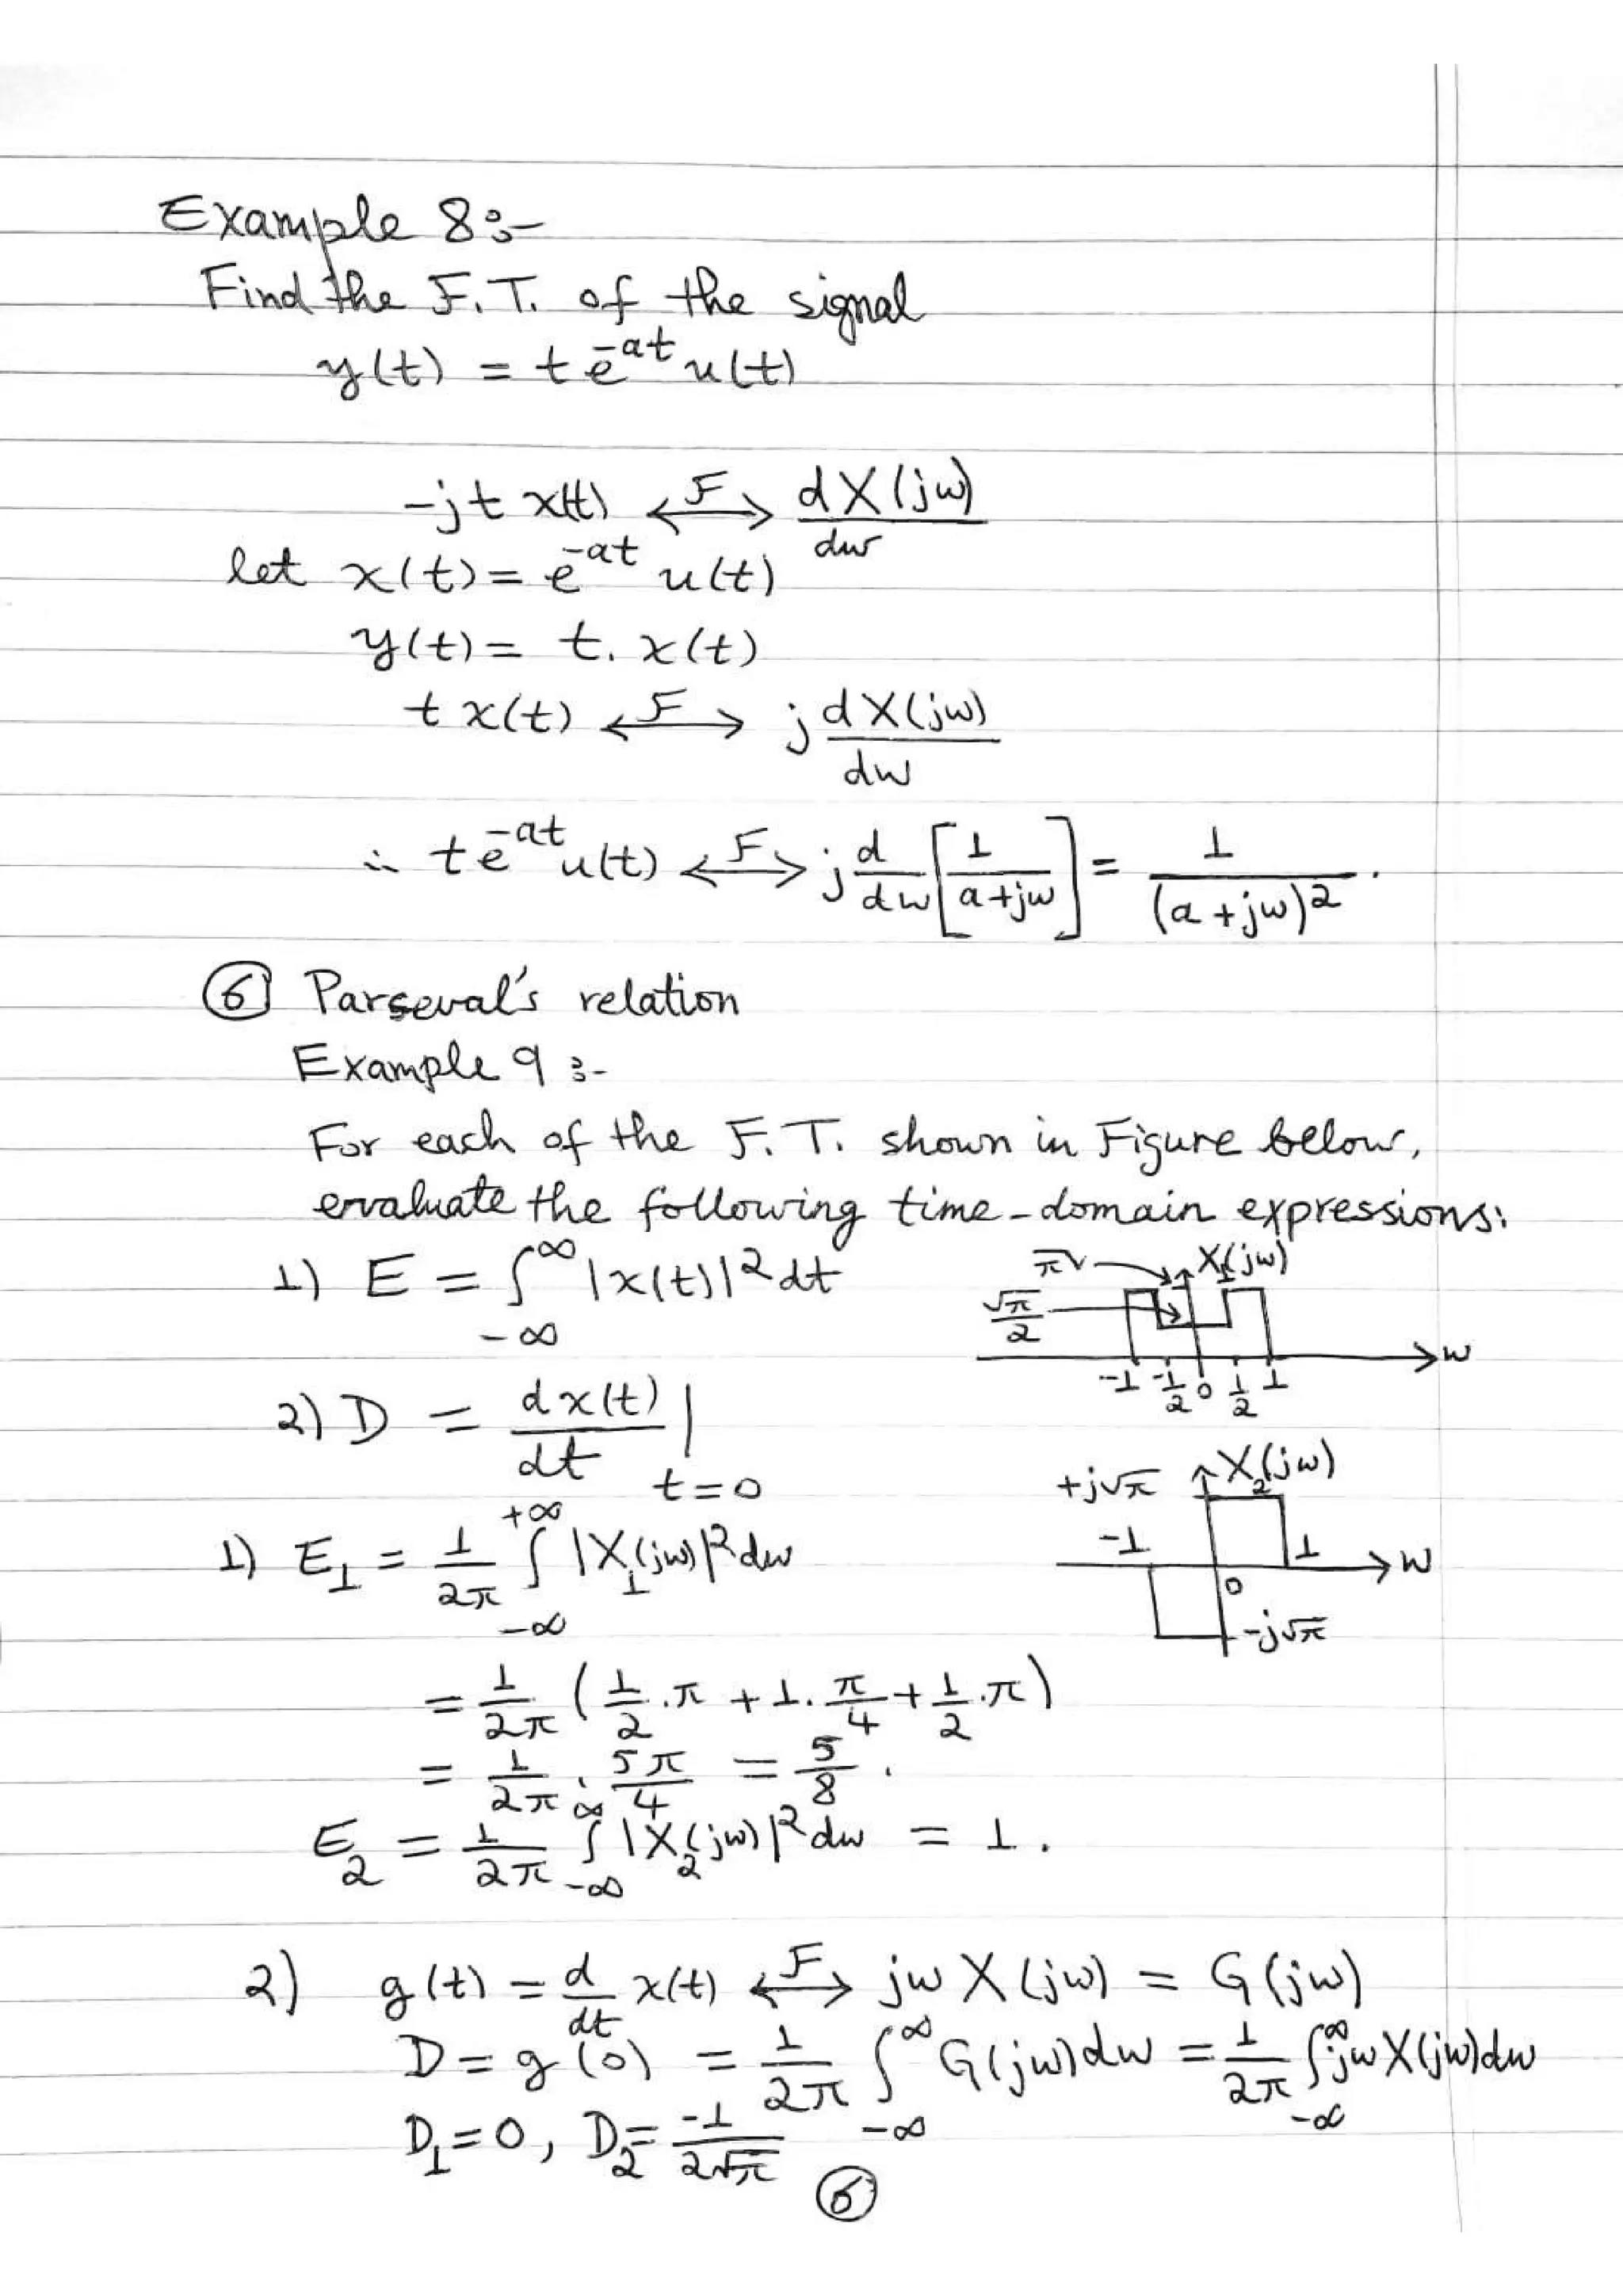 Example 8:-
Find the F.T. of the signal
y(t) = t e^{-at} u(t)
-jt x(t) ⟷^F dX(jω)/dω
let x(t) = e^{-at} u(t)
y(t) = t. x(t)
t x(t) ⟷^F j dX(jω)/dω
∴ t e^{-at} u(t) ⟷^F j d/dω [1/(a+jω)] = 1/(a+jω)^2 .
⑥ Parseval's relation
Example 9 :-
For each of the F.T. shown in Figure below,
evaluate the following time-domain expressions:
1) E = ∫_{-∞}^{∞} |x(t)|^2 dt
X_1(jω)
√π/2
-1 -1/2 0 1/2 1 ω
2) D = dx(t)/dt |_{t=0}
+j√π X_2(jω)
-1 0 1 ω
-j√π
1) E_1 = 1/2π ∫_{-∞}^{+∞} |X_1(jω)|^2 dω
= 1/2π (1/2 .π + 1. π/4 + 1/2 .π)
= 1/2π . 5π/4 = 5/8 .
E_2 = 1/2π ∫_{-∞}^{∞} |X_2(jω)|^2 dω = 1 .
2) g(t) = d/dt x(t) ⟷^F jω X(jω) = G(jω)
D = g(0) = 1/2π ∫_{-∞}^{∞} G(jω)dω = 1/2π ∫_{-∞}^{∞} jω X(jω)dω
D_1 = 0, D_2 = -1/2√π
⑥